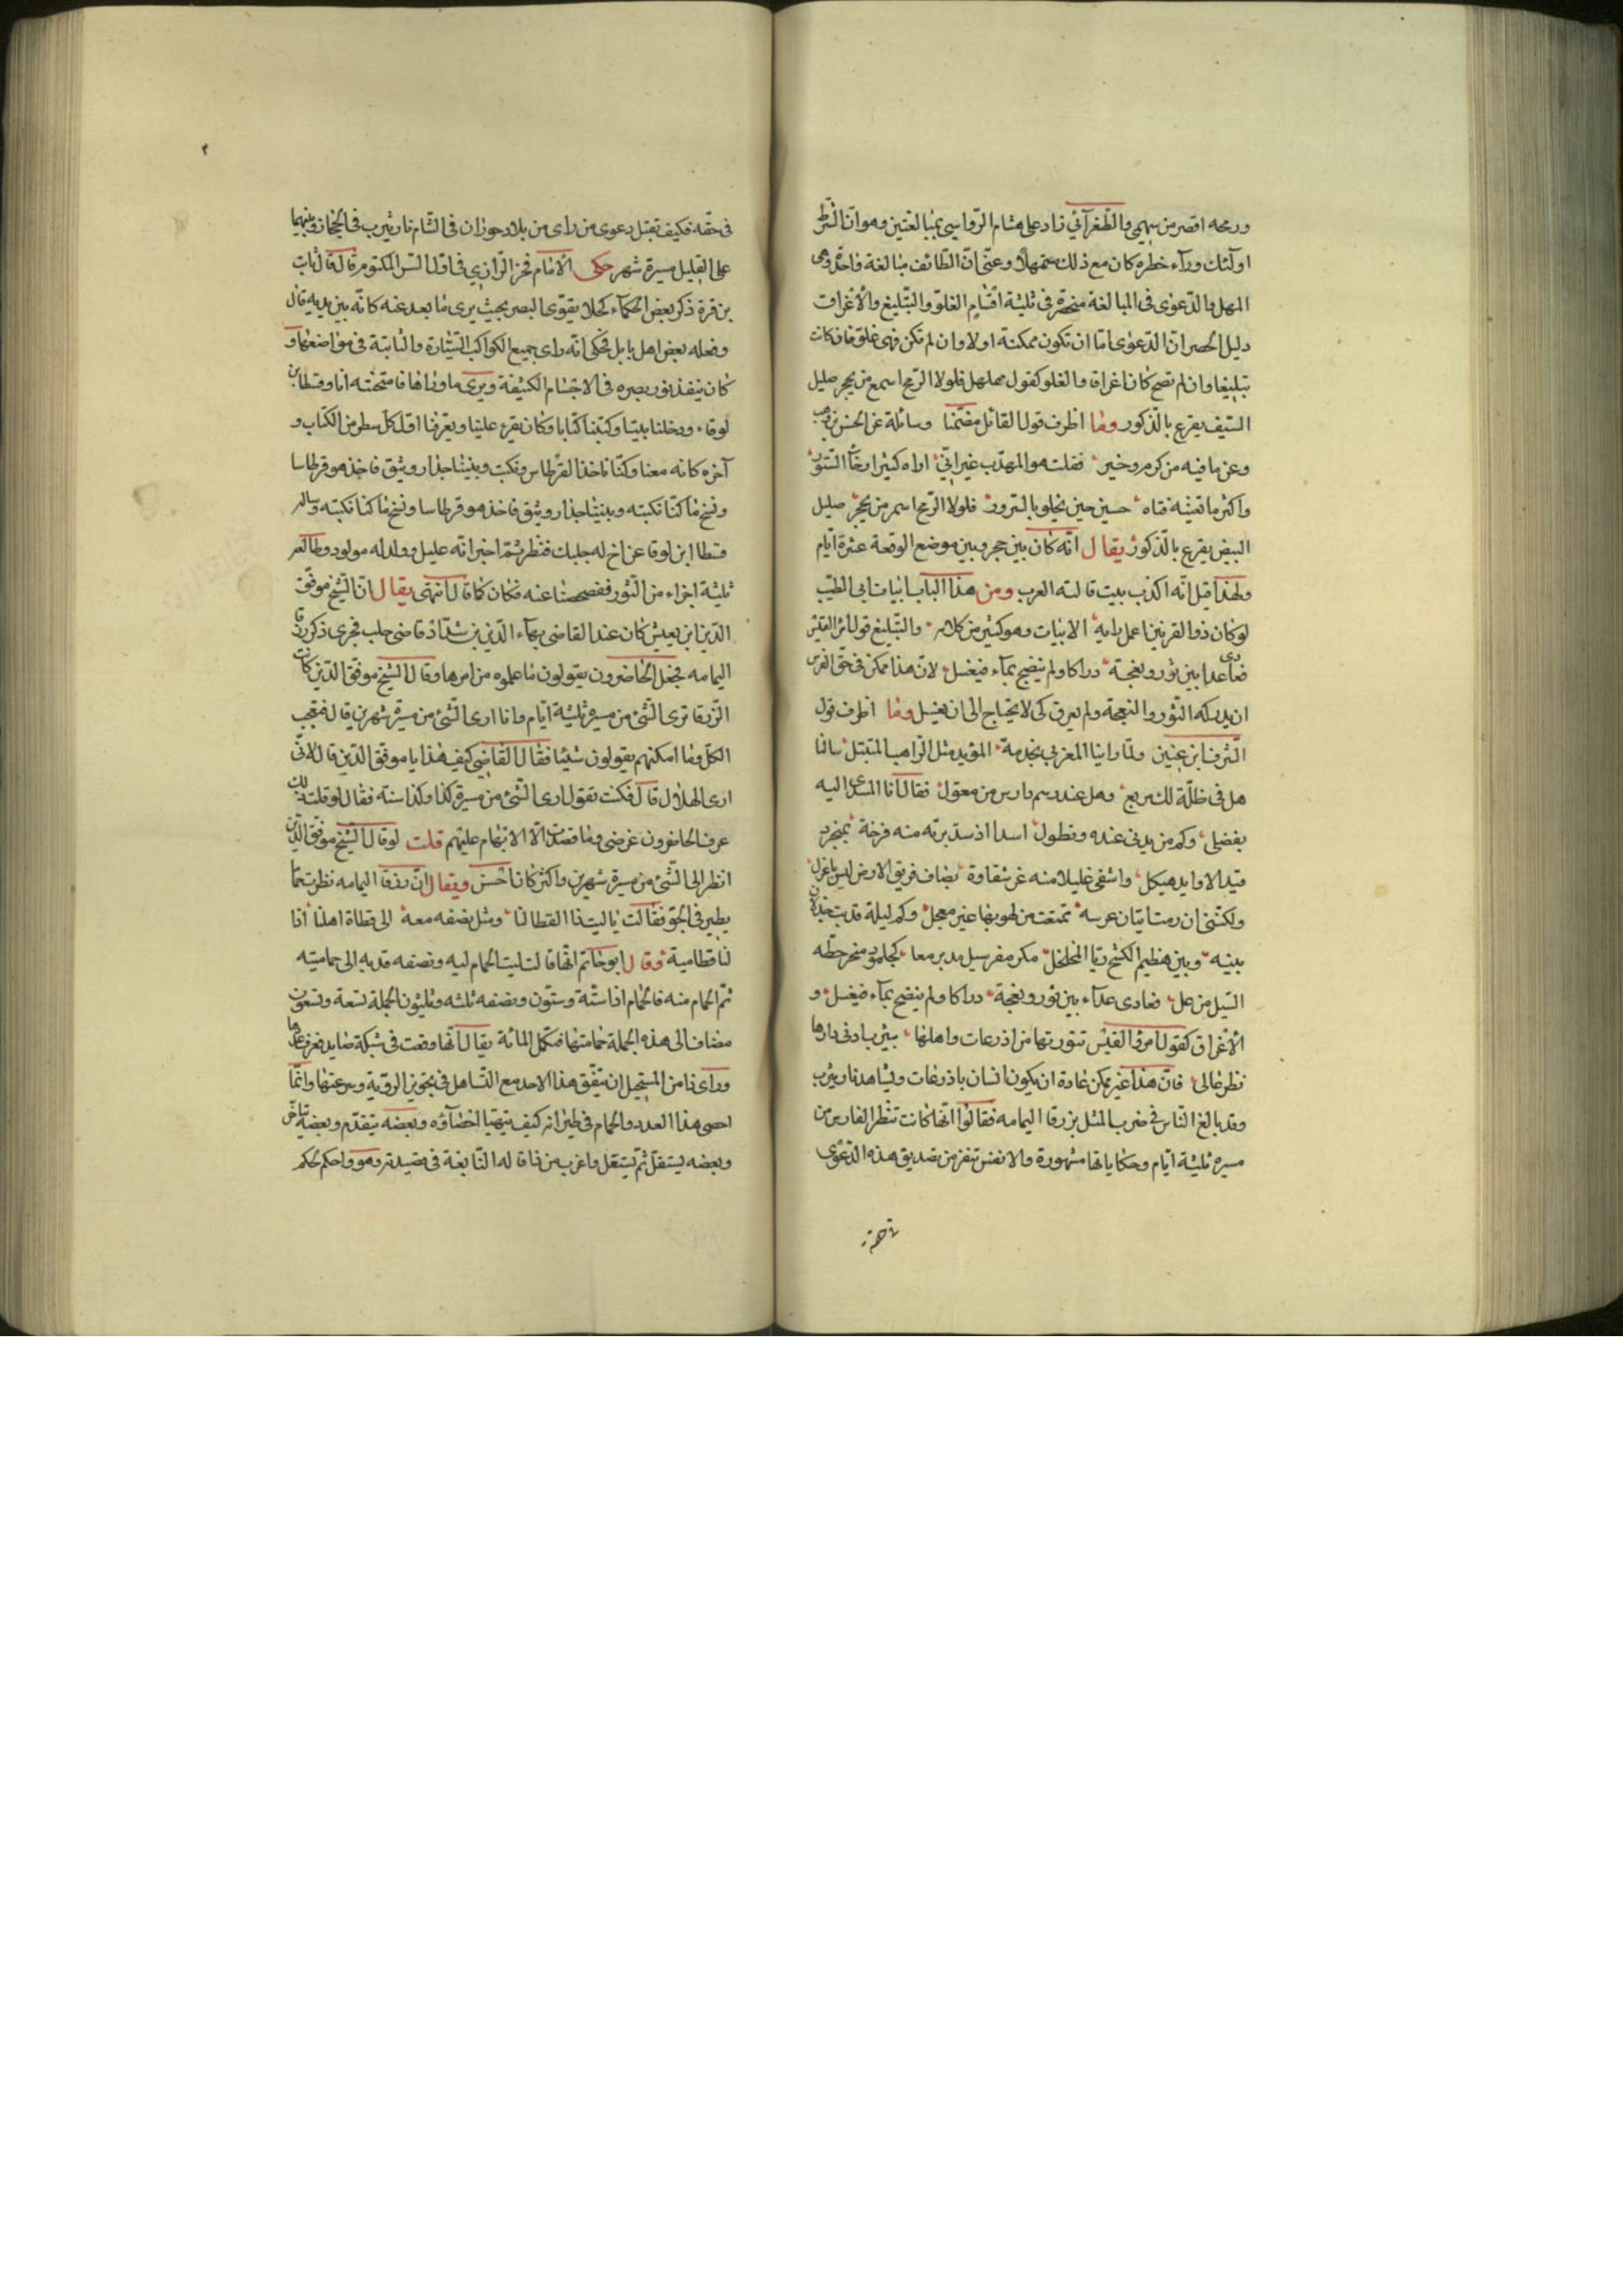 ورمحه اقصر من سهمي والطغرآئي زاد على هشام الرواسي بمبالغتين وهو ان النظر
اولئك ورآء خطره كان مع ذلك متمهلا وعنى ان الطائف مبالغة واحدة وهى
المهل والدعوى فى المبالغة منحصرة فى ثلثة اقسام الغلو والتبليغ والاغراق
دليل الحصر ان الدعوى اما ان تكون ممكنة او لا وان لم تكن فهى غلو فان كان
تبليغا وان لم تصح كان اغراقا والغلو كقول مهلهل فلولا الريح اسمع من بحجر صليل
السيف يقرع بالذكور وما اظرف قول القائل مضمنا وسائلة عن الحسن بن وهب
وعن ما فيه من كرم وخير فقلت هو المهذب غير انى اراه كثير ارخآ الستور
واكثر ما تغنيه فتاه حسين حين يخلو بالسرور فلولا الريح اسمع من بحجر صليل
البيض يقرع بالذكور يقال انه كان بين حجر وبين موضع الوقعة عشرة ايام
ولهذا قيل انه اكذب بيت قالته العرب ومن هذا الباب ابيات ابى الطيب
لو كان ذو القرنين اعمل رايه الابيات وهو كثير من كلامه والتبليغ قول امرئ القيس
فعادى عدا بين ثور ونعجة دراكا ولم ينضح بمآء فيغسل لان هذا ممكن فى حق الفرس
ان يدركه الثور والنعجة ولم يعرق كى لا يحتاج الى ان يغسل وما اظرف قول
الشرف ابن عنين ولما رانيا المعزبى بخدمة المؤيد مثل الراهب المتبتل سالنا
هل فى ظلة لك مربع وهل عند رسم دارس من معول فقال انا المسدى اليه
بفضلى وكم من يد لى عنده وتطول اسدا اذ ستدبرته منه فرخة بمنجرد
قيد الاوابد هيكل واشفى غليلا منه غير شقاوة يضاف فريق الارض ليس باعزل
ولكننى ان رمت اتيان عرسه تمتعت من لهو بها غير معجل وكم ليلة قد بت خدن
بينه وبين هظيم الكشح ريا المخلخل مكر مفر سبل مدبر معا كجلمود صخر حطه
السيل من عل فعادى عدآء بين ثور ونعجة دراكا ولم ينضح بمآء فيغسل و
الاغراق كقول امرؤ القيس تنورتها من اذرعات واهلها بيثرب ادنى دارها
نظر عالى فان هذا غير ممكن عادة ان يكون انسان باذرعات ويشاهد نار يثرب
وقد بالغ الناس فى ضرب المثل بزرقا اليمامه فقالوا انها كانت تنظر الفارس من
مسيره ثلثة ايام وحكاياتها مشهورة والانفس تنفر من تصديق هذه الدعوى
فى حقه فكيف تقبل دعوى من راى من بلاد حوران فى الشام نار يثرب فى الحجاز وبينهما
على القليل مسيرة شهر حكى الامام فخر الرازي فى اول السر المكتوم قال قال ثابت
بن قرة ذكر بعض الحكمآء كحلا يقوى البصر بحيث يرى ما بعد عنه كانه بين يديه قال
وفعله بعض اهل بابل فحكى انه راى جميع الكواكب السيارة والثابتة فى مواضعها و
كان ينفذ نور بصره فى الاجسام الكثيفة ويرى ما وراها فامتحنته انا وقسطا بن
لوقاء ودخلنا بيتا وكتبنا كتابا وكان يقرء علينا ويعرفنا اول كل سطر من الكتاب و
آخره كانه معنا وكنا ناخذ القرطاس ونكتب وبيننا جدار وثيق فاخذ هو قرطاسا
ونسخ ما كنا نكتبه وبيننا جدار وثيق فاخذ هو قرطاسا ونسخ ما كنا نكتبه وساله
قسطا ابن لوقا عن اخ له ببعلبك فنظر ثم اخبر انه عليل وولد له مولود وطالعه
ثلثة اجزاء من الثور ففحصنا عنه فكان كما قال انتهى يقال ان الشيخ موفق
الدين ابن يعيش كان عند القاضى بهآء الدين بن شداد قاضى حلب فجرى ذكر زرقا
اليمامه فجعل الحاضرون يقولون ما علموه من امرها وقال الشيخ موفق الدين كانت
الزرقا ترى الشئ من مسيرة ثلثة ايام وانا ارى الشئ من مسيرة شهرين قال فتعجب
الكل وما امكنهم يقولون شيئا فقال القاضى كيف هذا يا موفق الدين قال لانى
ارى الهلال قال فكنت تقول ارى الشئ من مسيرة كذا وكذا سنة فقال لو قلت ذلك
عرف الحاضرون غرضى وما قصدت الا الابهام عليهم قلت لو قال الشيخ موفق الدين
انظر الى الشئ من مسيرة شهرين واكثر كان احسن ويقال ان زرقا اليمامه نظرت حماما
يطير فى الجو فقالت يا ليت ذا القطا لنا ومثل نصفه معه الى قطاة اهلنا اذا
لنا قطا مية وقال ابو حاتم انها قالت ليت الحمام ليه ونصفه قديه الى حمامتيه
تم الحمام ميه فالحمام اذا ستة وستون ونصفه ثلثه وثلثون الجملة تسعة وتسعون
مضاف الى هذه الجملة حمامتها فتكمل المائة يقال انها وقعت فى شبكة صايد فعرف عدها
وراى ذا من المستحيل ان يتفق هذا لاحد مع التساهل فى تجويز الروية وسرعتها وانما
احصى هذا العدد والحمام فى طيرانه كيف يتهيا احصآؤه وبعضه يتقدم وبعضه يتاخر
وبعضه يستقل ثم يستقل واغرب من ذا قاله النابغة فى قصيدته وهو واحكم كحكم